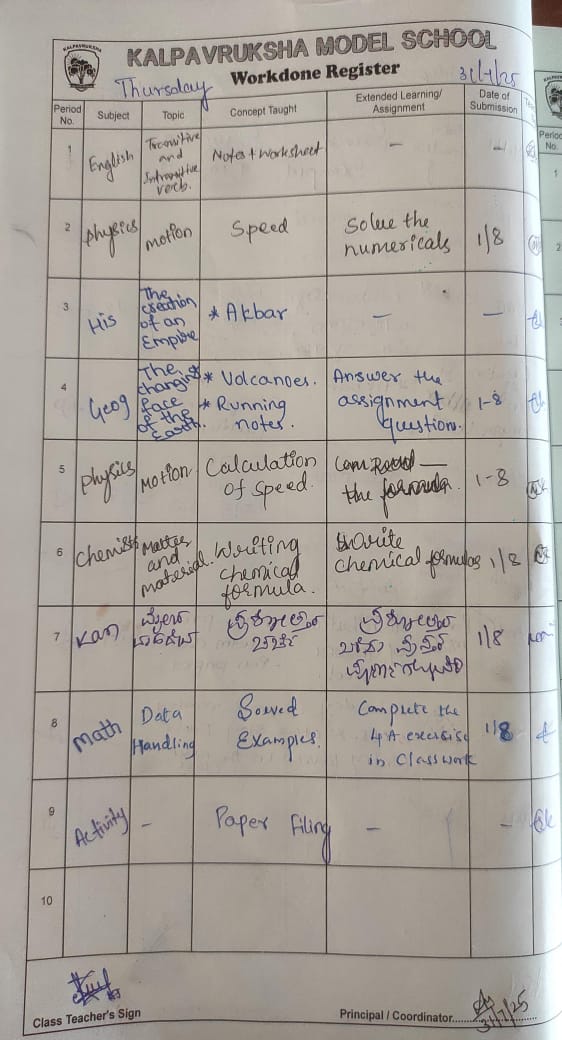 KALPAVRUKSHA MODEL SCHOOL
Workdone Register
Thursday
31/7/25
Period No. Subject Topic Concept Taught Extended Learning/ Assignment Date of Submission
1 English Transitive and Intransitive verb. Notes + Worksheet - -
2 Physics Motion Speed Solve the numericals 1/8
3 His The creation of an Empire * Akbar - -
4 Geog The changing face of the Earth. * Volcanoes. * Running notes. Answer the assignment question. 1-8
5 Physics Motion Calculation of speed. the formula. 1-8
6 Chemistry Matter and material. Writing chemical formula. Write chemical formulas 1/8
7 Kan 1/8
8 Math Data Handling Solved Examples. Complete the 4A exercise in Classwork 1/8
9 Activity - Paper Filing - -
10
Class Teacher's Sign
Principal / Coordinator
31/7/25
Period No.
1
2